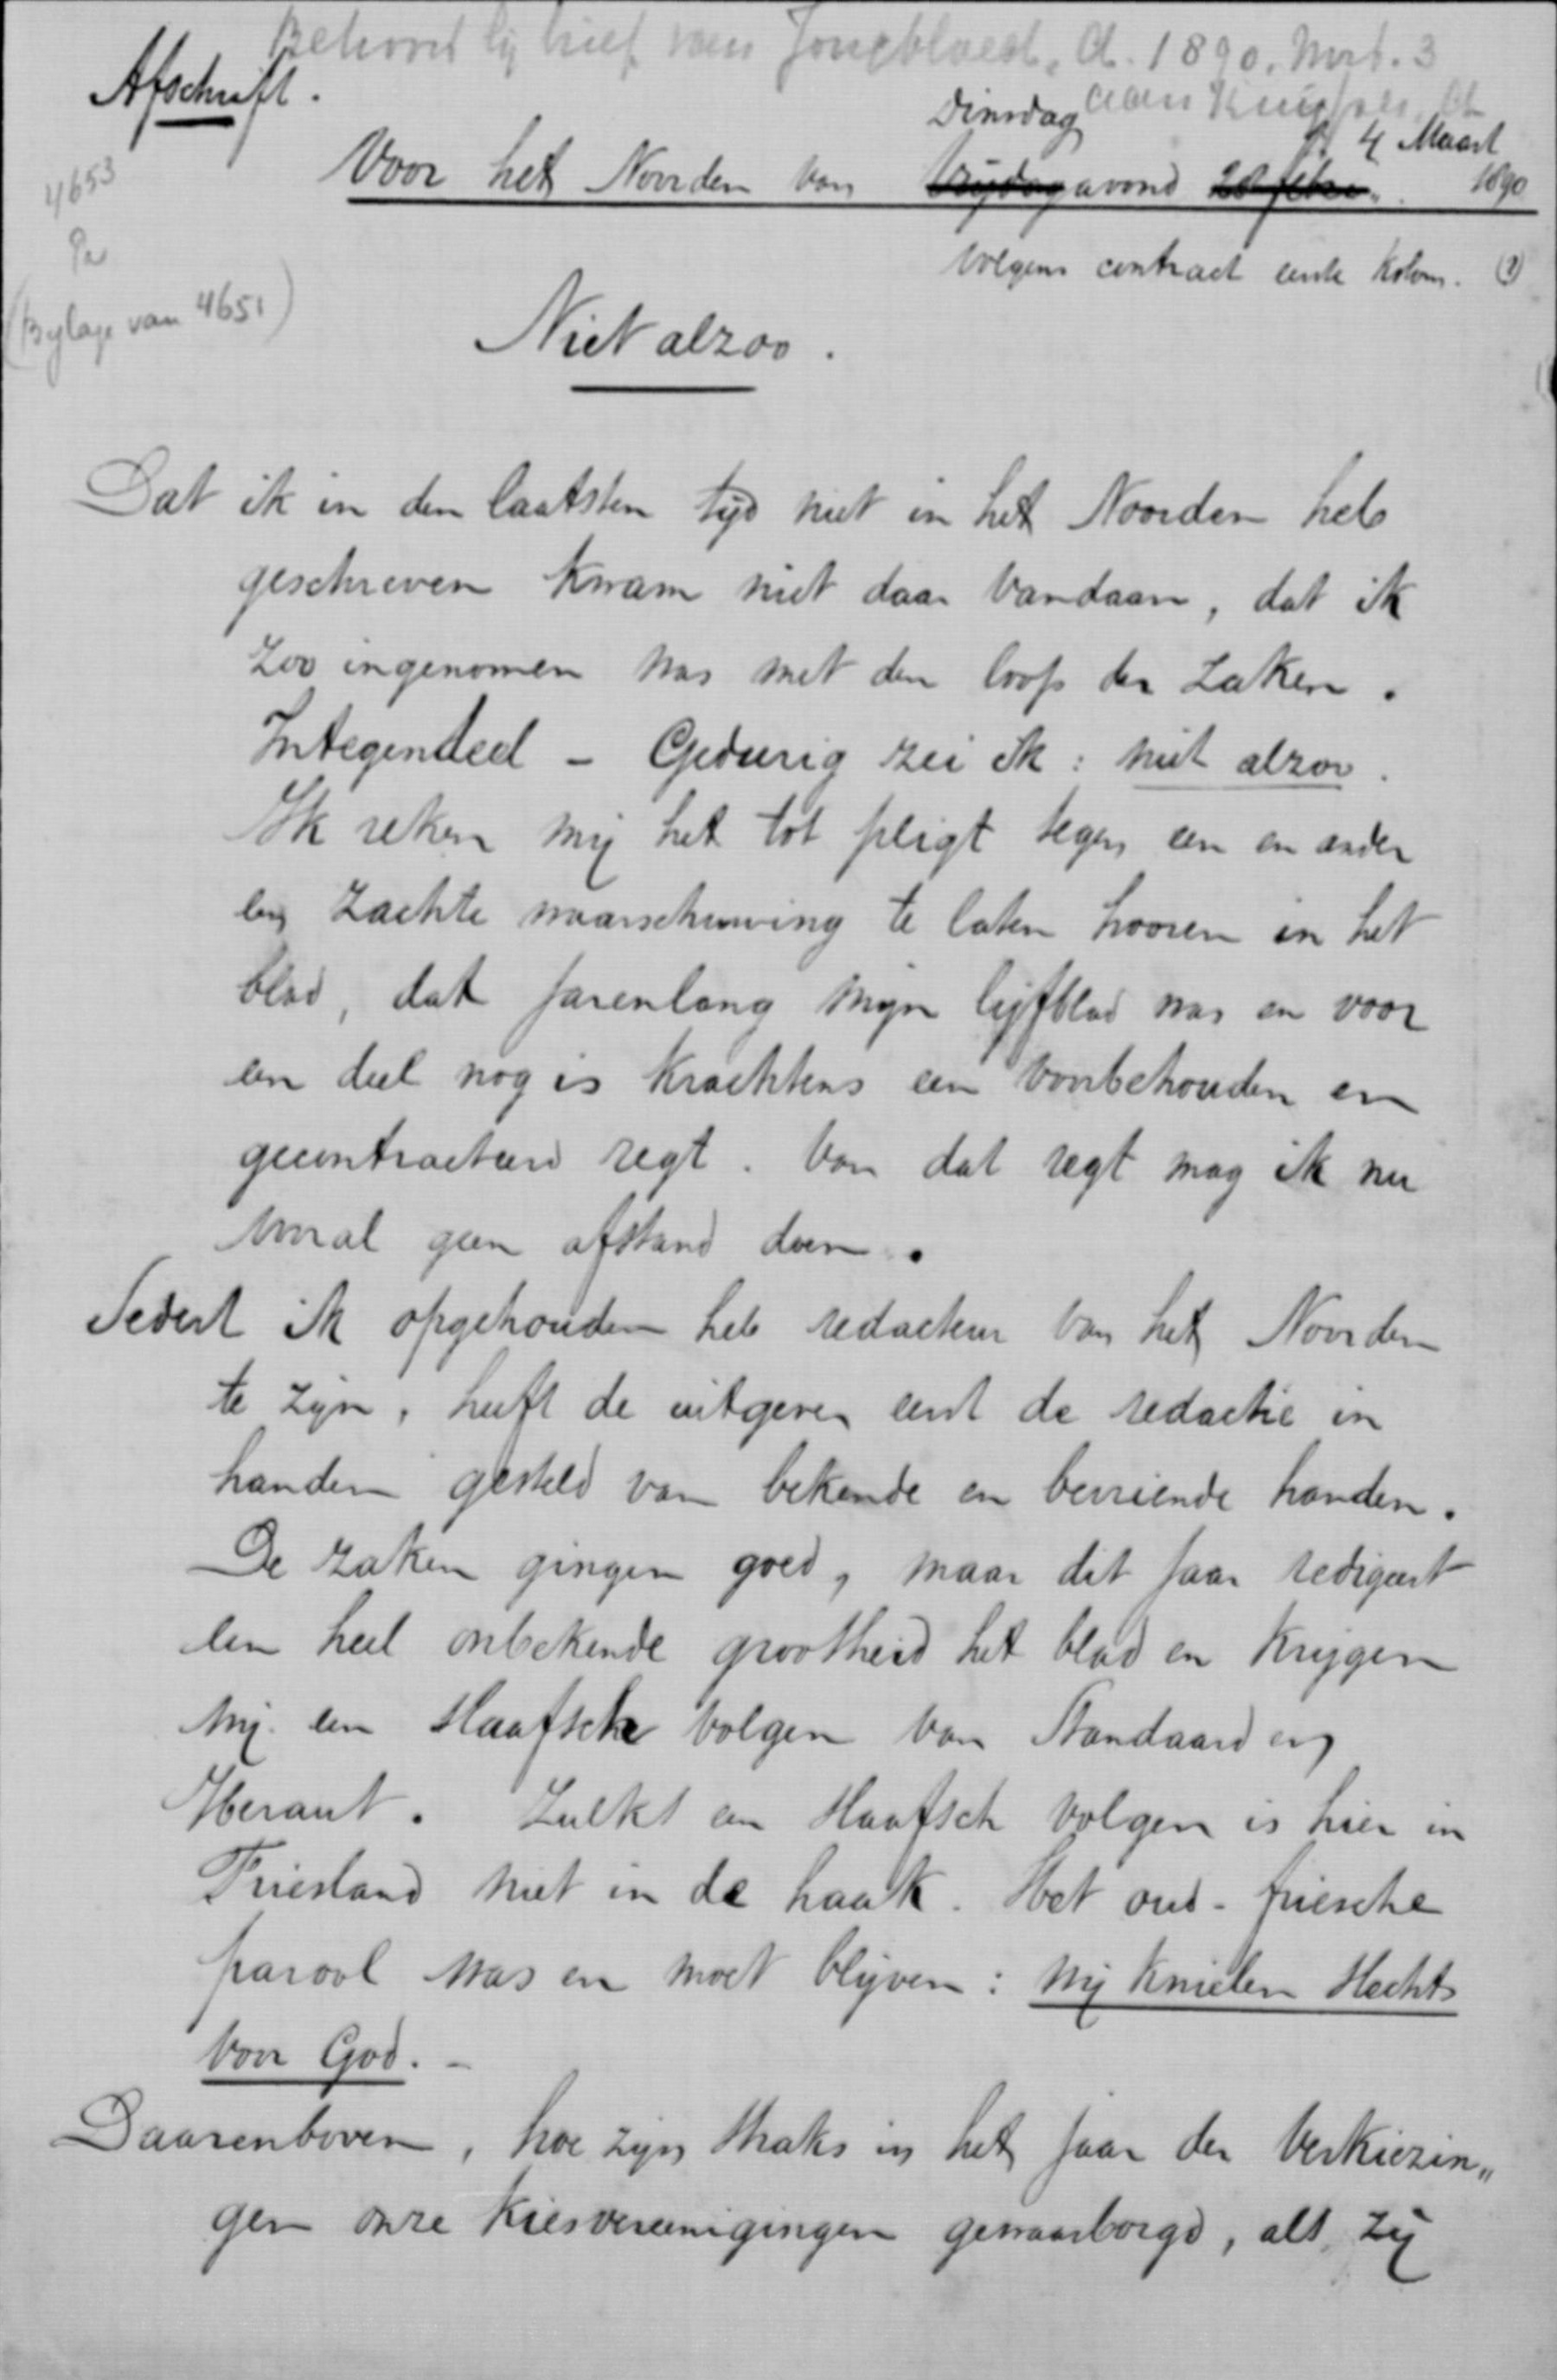 Behoort bij brief van Jongbloed, A. 1890, Mrt. 3
Afschrift.
aan Kuyper, A
Dinsdag
4 Maart
4653
Voor het Noorden van Vrijdagavond 28 febr. 1890
Pa
volgens contract eerste kolom. (?)
(Bylage van 4651)
Niet alzoo.
Dat ik in den laatsten tijd niet in het Noorden heb
geschreven kwam niet daar vandaan, dat ik
zoo ingenomen was met den loop der zaken.
Integendeel - Gedurig zei ik: niet alzoo.
Ik reken mij het tot pligt tegen een en ander
een zachte waarschuwing te laten hooren in het
blad, dat jarenlang mijn lijfblad was en voor
een deel nog is krachtens een voorbehouden en
gecontracteerd regt. Van dat regt mag ik nu
vooral geen afstand doen.
Sedert ik opgehouden heb redacteur van het Noorden
te zijn, heeft de uitgever eerst de redactie in
handen gesteld van bekende en bevriende handen.
De zaken gingen goed, maar dit jaar redigeert
een heel onbekende grootheid het blad en krijgen
wij een slaafsche volgen van Standaard en
Heraut. Zulkt een slaafsch volgen is hier in
Friesland niet in de haak. Het oud-friesche
parool was en moet blijven: wij knielen slechts
voor God. -
Daarenboven, hoe zijn straks in het jaar der verkiezin„
gen onze kiesvereenigingen gewaarborgd, als zij